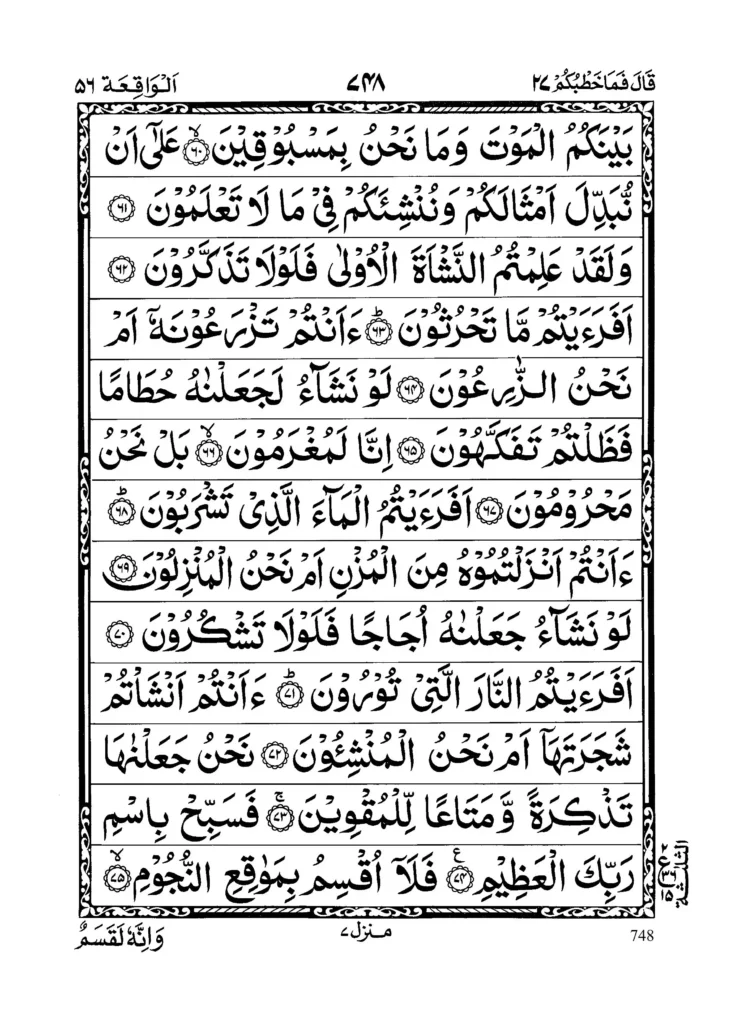 قَالَ فَمَا خَطْبُكُمْ ٢٧ ٧٤٨ اَلْوَاقِعَة ٥٦
بَيْنَكُمُ الْمَوْتَ وَمَا نَحْنُ بِمَسْبُوْقِيْنَ ۙ‏﴿۶۰﴾ عَلٰٓى اَنْ
نُّبَدِّلَ اَمْثَالَكُمْ وَنُنْشِئَكُمْ فِيْ مَا لَا تَعْلَمُوْنَ ﴿۶۱﴾
وَلَقَدْ عَلِمْتُمُ النَّشْاَةَ الْاُوْلٰى فَلَوْلَا تَذَكَّرُوْنَ ﴿۶۲﴾
اَفَرَءَيْتُمْ مَّا تَحْرُثُوْنَ ؕ﴿۶۳﴾ ءَاَنْتُمْ تَزْرَعُوْنَهٗٓ اَمْ
نَحْنُ الزّٰرِعُوْنَ ﴿۶۴﴾ لَوْ نَشَآءُ لَجَعَلْنٰهُ حُطَامًا
فَظَلْتُمْ تَفَكَّهُوْنَ ﴿۶۵﴾ اِنَّا لَمُغْرَمُوْنَ ۙ﴿۶۶﴾ بَلْ نَحْنُ
مَحْرُوْمُوْنَ ﴿۶۷﴾ اَفَرَءَيْتُمُ الْمَآءَ الَّذِيْ تَشْرَبُوْنَ ؕ﴿۶۸﴾
ءَاَنْتُمْ اَنْزَلْتُمُوْهُ مِنَ الْمُزْنِ اَمْ نَحْنُ الْمُنْزِلُوْنَ ﴿۶۹﴾
لَوْ نَشَآءُ جَعَلْنٰهُ اُجَاجًا فَلَوْلَا تَشْكُرُوْنَ ﴿۷۰﴾
اَفَرَءَيْتُمُ النَّارَ الَّتِيْ تُوْرُوْنَ ؕ﴿۷۱﴾ ءَاَنْتُمْ اَنْشَاْتُمْ
شَجَرَتَهَآ اَمْ نَحْنُ الْمُنْشِئُوْنَ ﴿۷۲﴾ نَحْنُ جَعَلْنٰهَا
تَذْكِرَةً وَّمَتَاعًا لِّلْمُقْوِيْنَ ۚ﴿۷۳﴾ فَسَبِّحْ بِاسْمِ
رَبِّكَ الْعَظِيْمِ ﴿۷۴﴾ ع فَلَآ اُقْسِمُ بِمَوٰقِعِ النُّجُوْمِ ۙ﴿۷۵﴾
الثلثة
748 منزل ٧ وَاِنَّهٗ لَقَسَمٌ